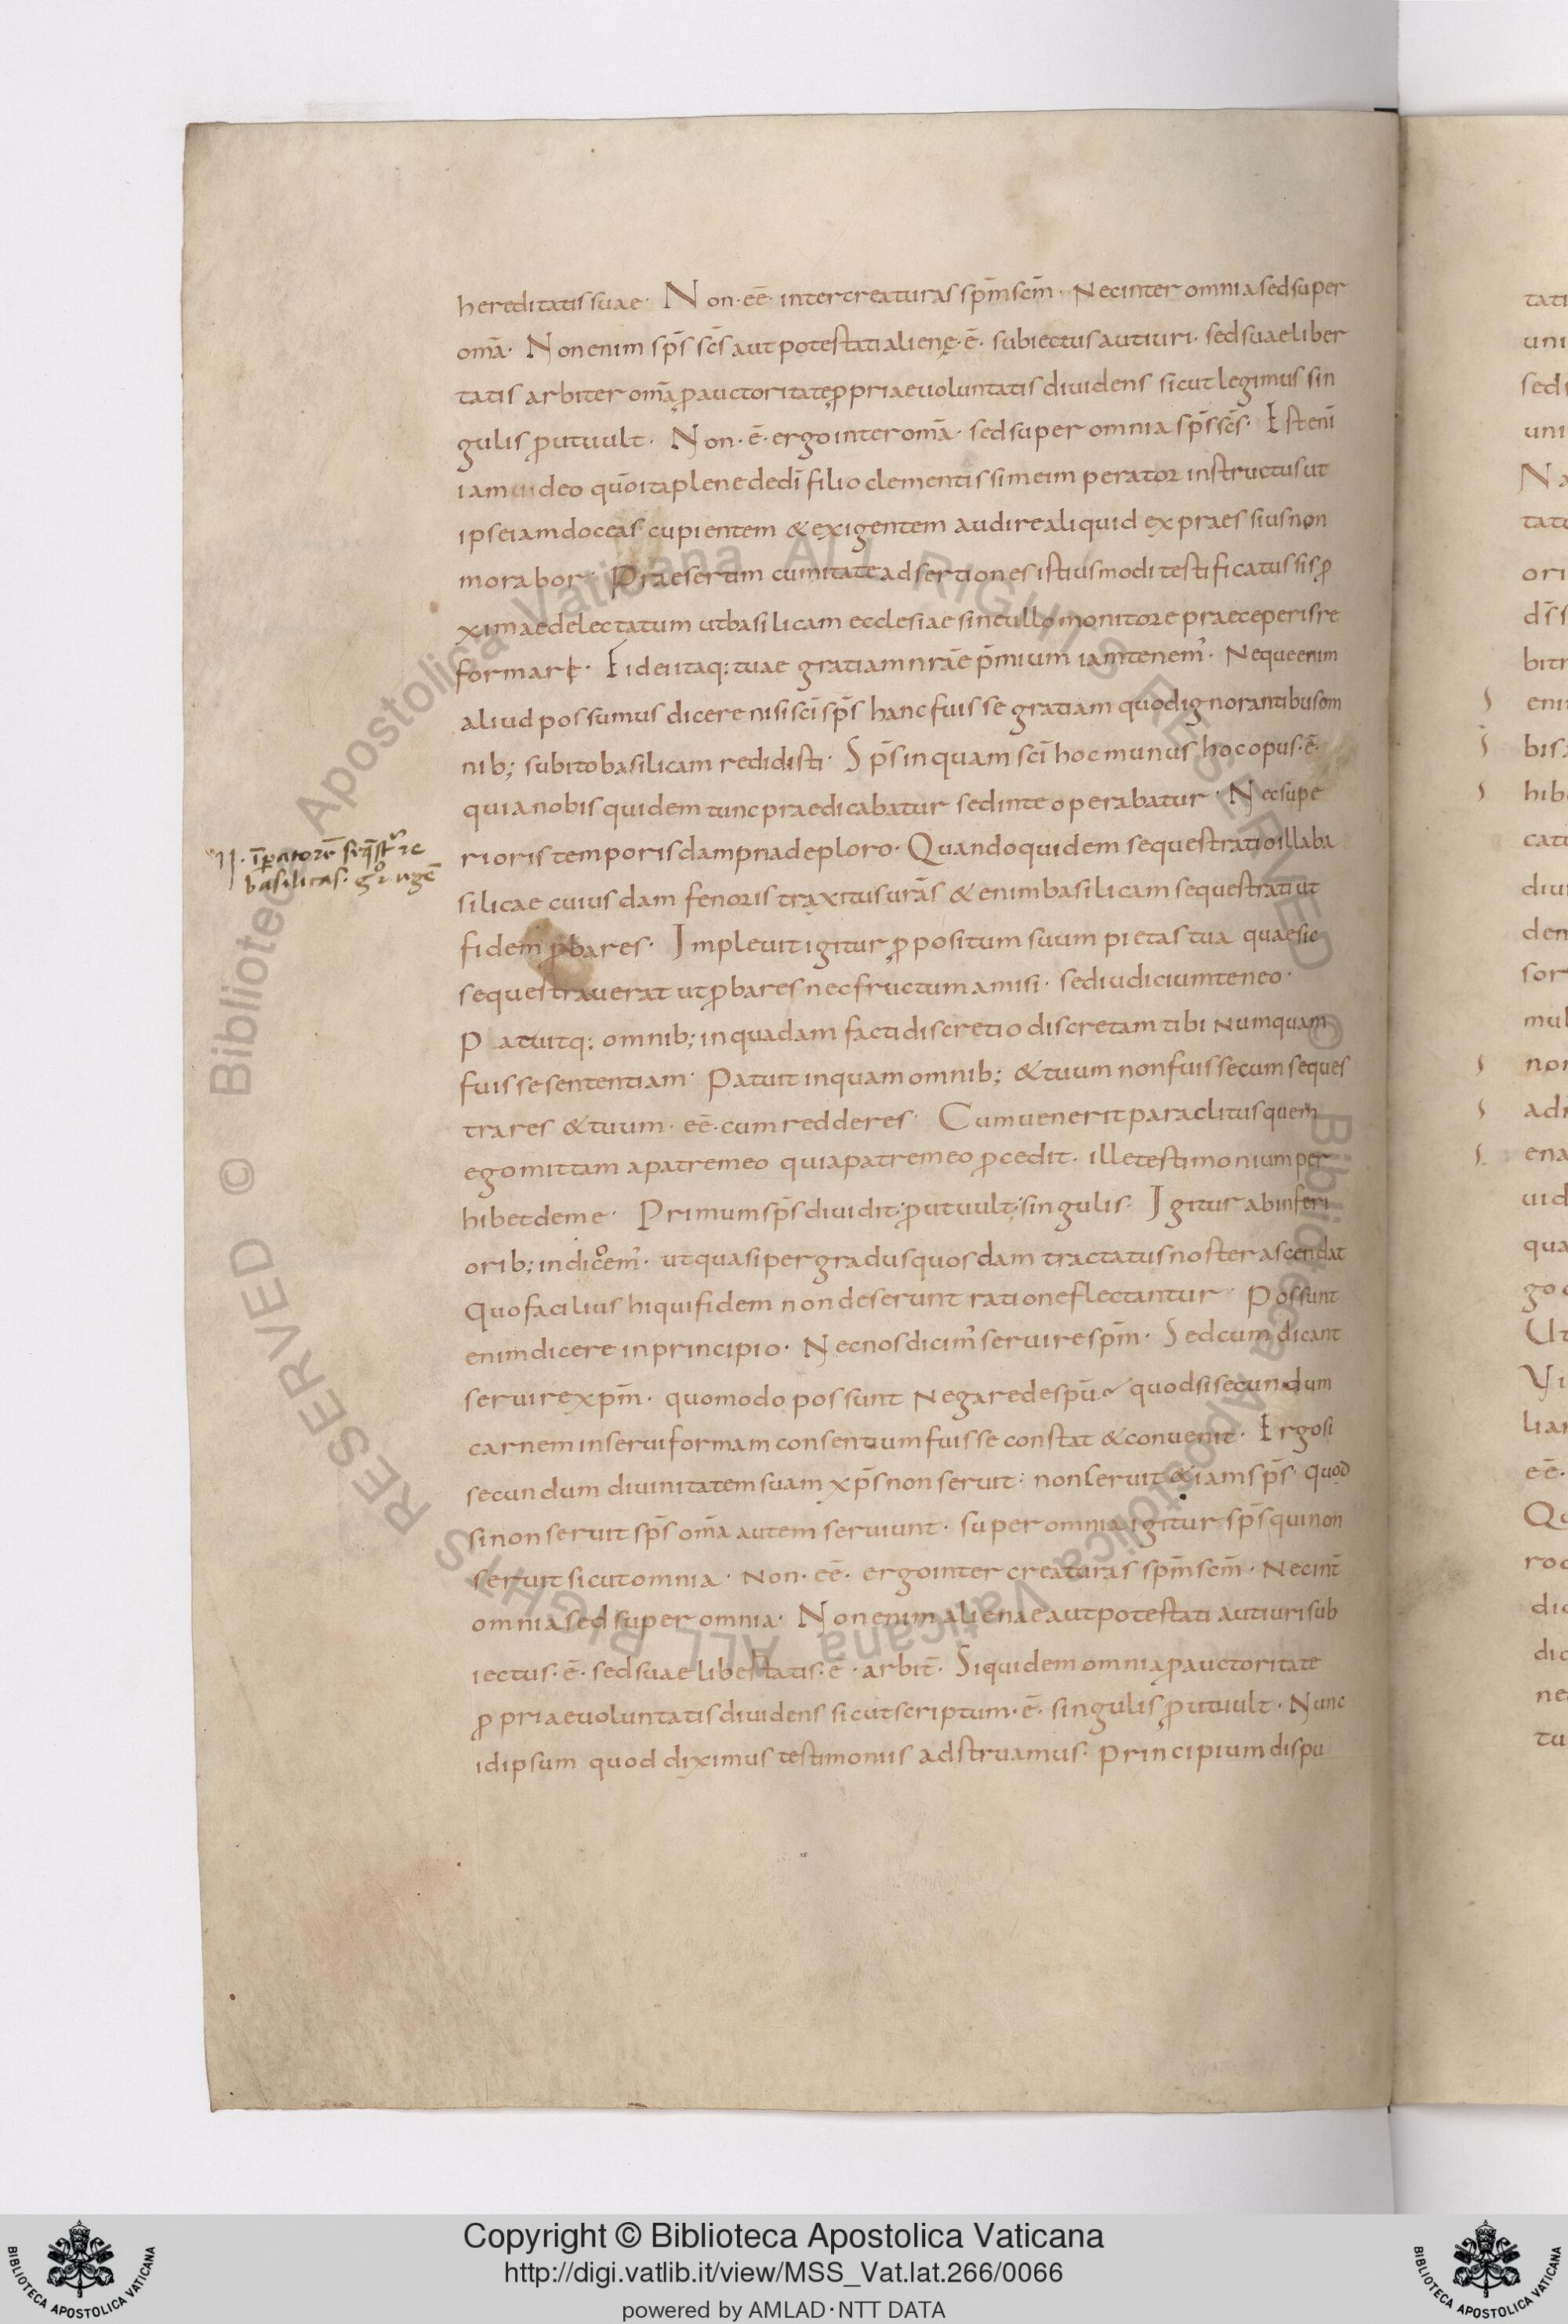 hereditatis suae· Non·eē· inter creaturas spm̄ scm̄· Nec inter omnia sed super
omā· Non enim sps̄ scs̄ aut potestati alienę·ē· subiectus aut iuri· sed suae liber
tatis arbiter omā ꝓ auctoritate ꝓpriae voluntatis dividens sicut legimus sin
gulis ꝓut vult· Non·ē· ergo inter omā· sed super omnia sps̄ scs̄· Est enī
iam video qūo ita plene dedī filio clementissime imperator instructus ut
ipse iam doceas cupientem & exigentem audire aliquid expraessius non
morabor· Praesertim cum ita te adsertiones istiusmodi testificatus sis ꝓ
ximae delectatum ut basilicam ecclesiae sine ullo monitore praeceperis re
formare· Fidei itaq; tuae gratiam nrāe p̄mium iam tenem᾽· Neque enim
aliud possumus dicere nisi scī sps̄ hanc fuisse gratiam quod ignorantibus om
nib; subito basilicam redidisti· Sps̄ inquam scī hoc munus hoc opus·ē·
quia nobis quidem tunc praedicabatur sed in te operabatur· Nec supe
rioris temporis dampna deploro· Quandoquidem sequestratio illa ba
silicae cuiusdam fenoris traxit usurās & enim basilicam sequestrati ut
fidem ꝓbares· Implevit igitur ꝓpositum suum pietas tua quae sic
sequestraverat ut ꝓbares nec fructum amisi· sed iudicium teneo·
Patuitq; omnib; in quadam facti discretio discretam tibi numquam
fuisse sententiam· Patuit inquam omnib; & tuum non fuisse cum seques
trares & tuum· eē· cum redderes· Cum venerit paraclitus quem
ego mittam a patre meo quia patre meo ꝓcedit· ille testimonium per
hibet de me· Primum sps̄ dividit ꝓut vult singulis· Igitur ab inferi
orib; indicem᾽· ut quasi per gradus quosdam tractatus noster ascendat
Quo facilius hi qui fidem non deserunt ratione flectantur· Possunt
enim dicere in principio· Nec nos dicim᾽ servire spm̄· Sed cum dicant
servire xpm̄· quomodo possunt negare de spū quod si secundum
carnem in servi formam consentium fuisse constat & convenit· Ergo si
secundum divinitatem suam xps̄ non servit· non servit &iam sps̄· quod
si non servit sps̄ omā autem serviunt· super omnia igitur sps̄ qui non
servit sicut omnia· Non·eē· ergo inter creaturas spm̄ scm̄· Nec int̄
omnia sed super omnia· Non enim alienae aut potestati aut iuri sub
iectus·ē· sed suae libertatis·ē· arbit̄· Siquidem omnia ꝓ auctoritate
ꝓpriae voluntatis dividens sicut scriptum·ē· singulis ꝓut vult· Nunc
id ipsum quod diximus testimoniis adstruamus· Principium dispu
basilicas·
tati
uni
sed
uni
ori
bitr
eni
bis
hib
cat
diu
den
sor
mul
non
adi
ena
uid
qua
go
Ut
liar
eē·
roc
dic
dic
ne
tu
© Biblioteca Apostolica Vaticana ALL RIGHTS RESERVED © Biblioteca Apostolica Vaticana ALL RIGHTS RESERVED
Copyright © Biblioteca Apostolica Vaticana
http://digi.vatlib.it/view/MSS_Vat.lat.266/0066
powered by AMLAD·NTT DATA
BIBLIOTECA APOSTOLICA VATICANA
BIBLIOTECA APOSTOLICA VATICANA